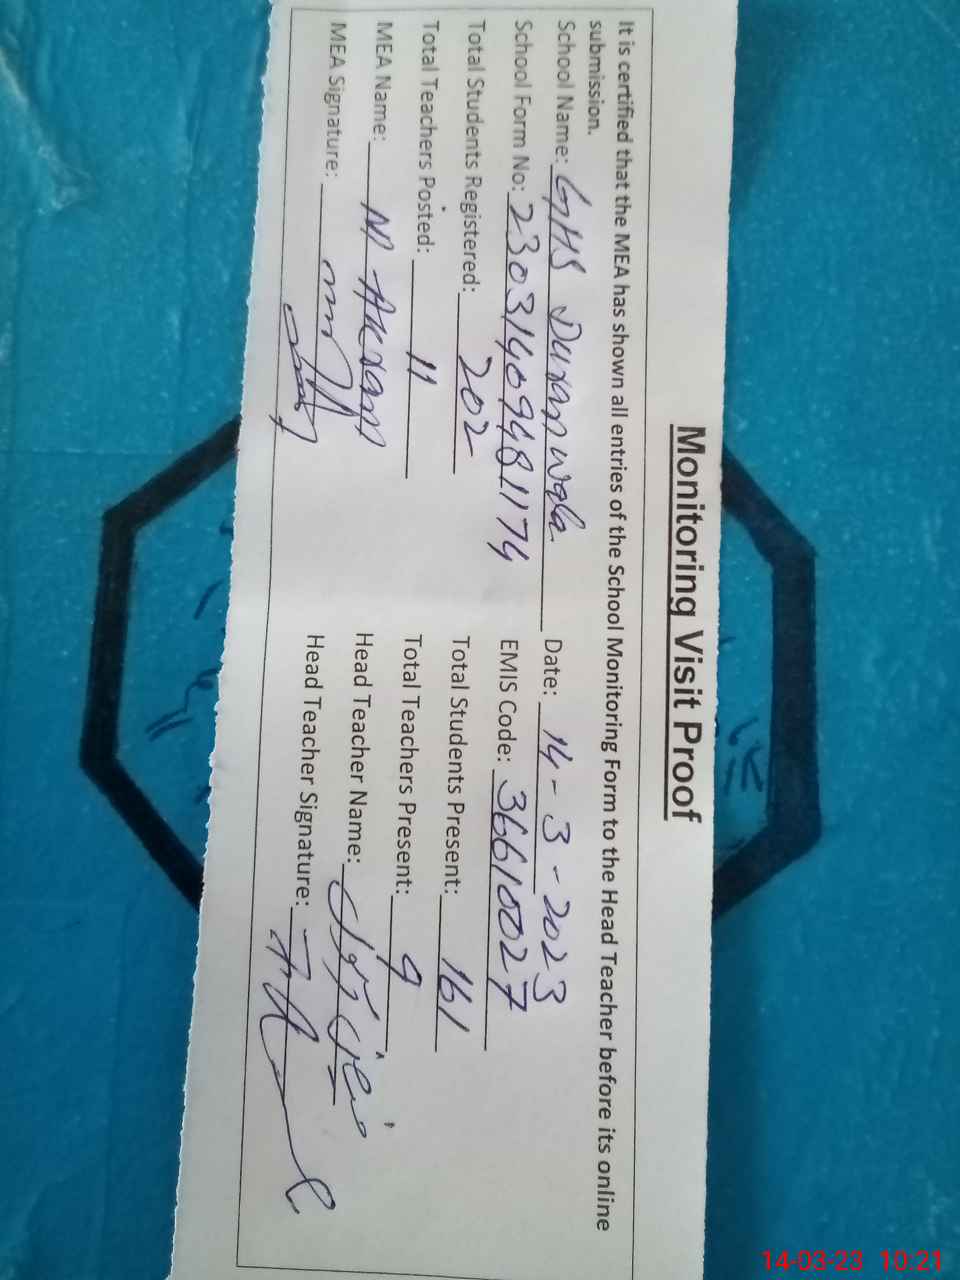 Monitoring Visit Proof
It is certified that the MEA has shown all entries of the School Monitoring Form to the Head Teacher before its online
submission.
School Name: GHS Duranwala Date: 14-3-2023
School Form No: 230314094811 74 EMIS Code: 36610027
Total Students Registered: 202 Total Students Present: 161
Total Teachers Posted: 11 Total Teachers Present: 9
MEA Name: M Akram Head Teacher Name:
MEA Signature: Head Teacher Signature:
14-03-23 10:21